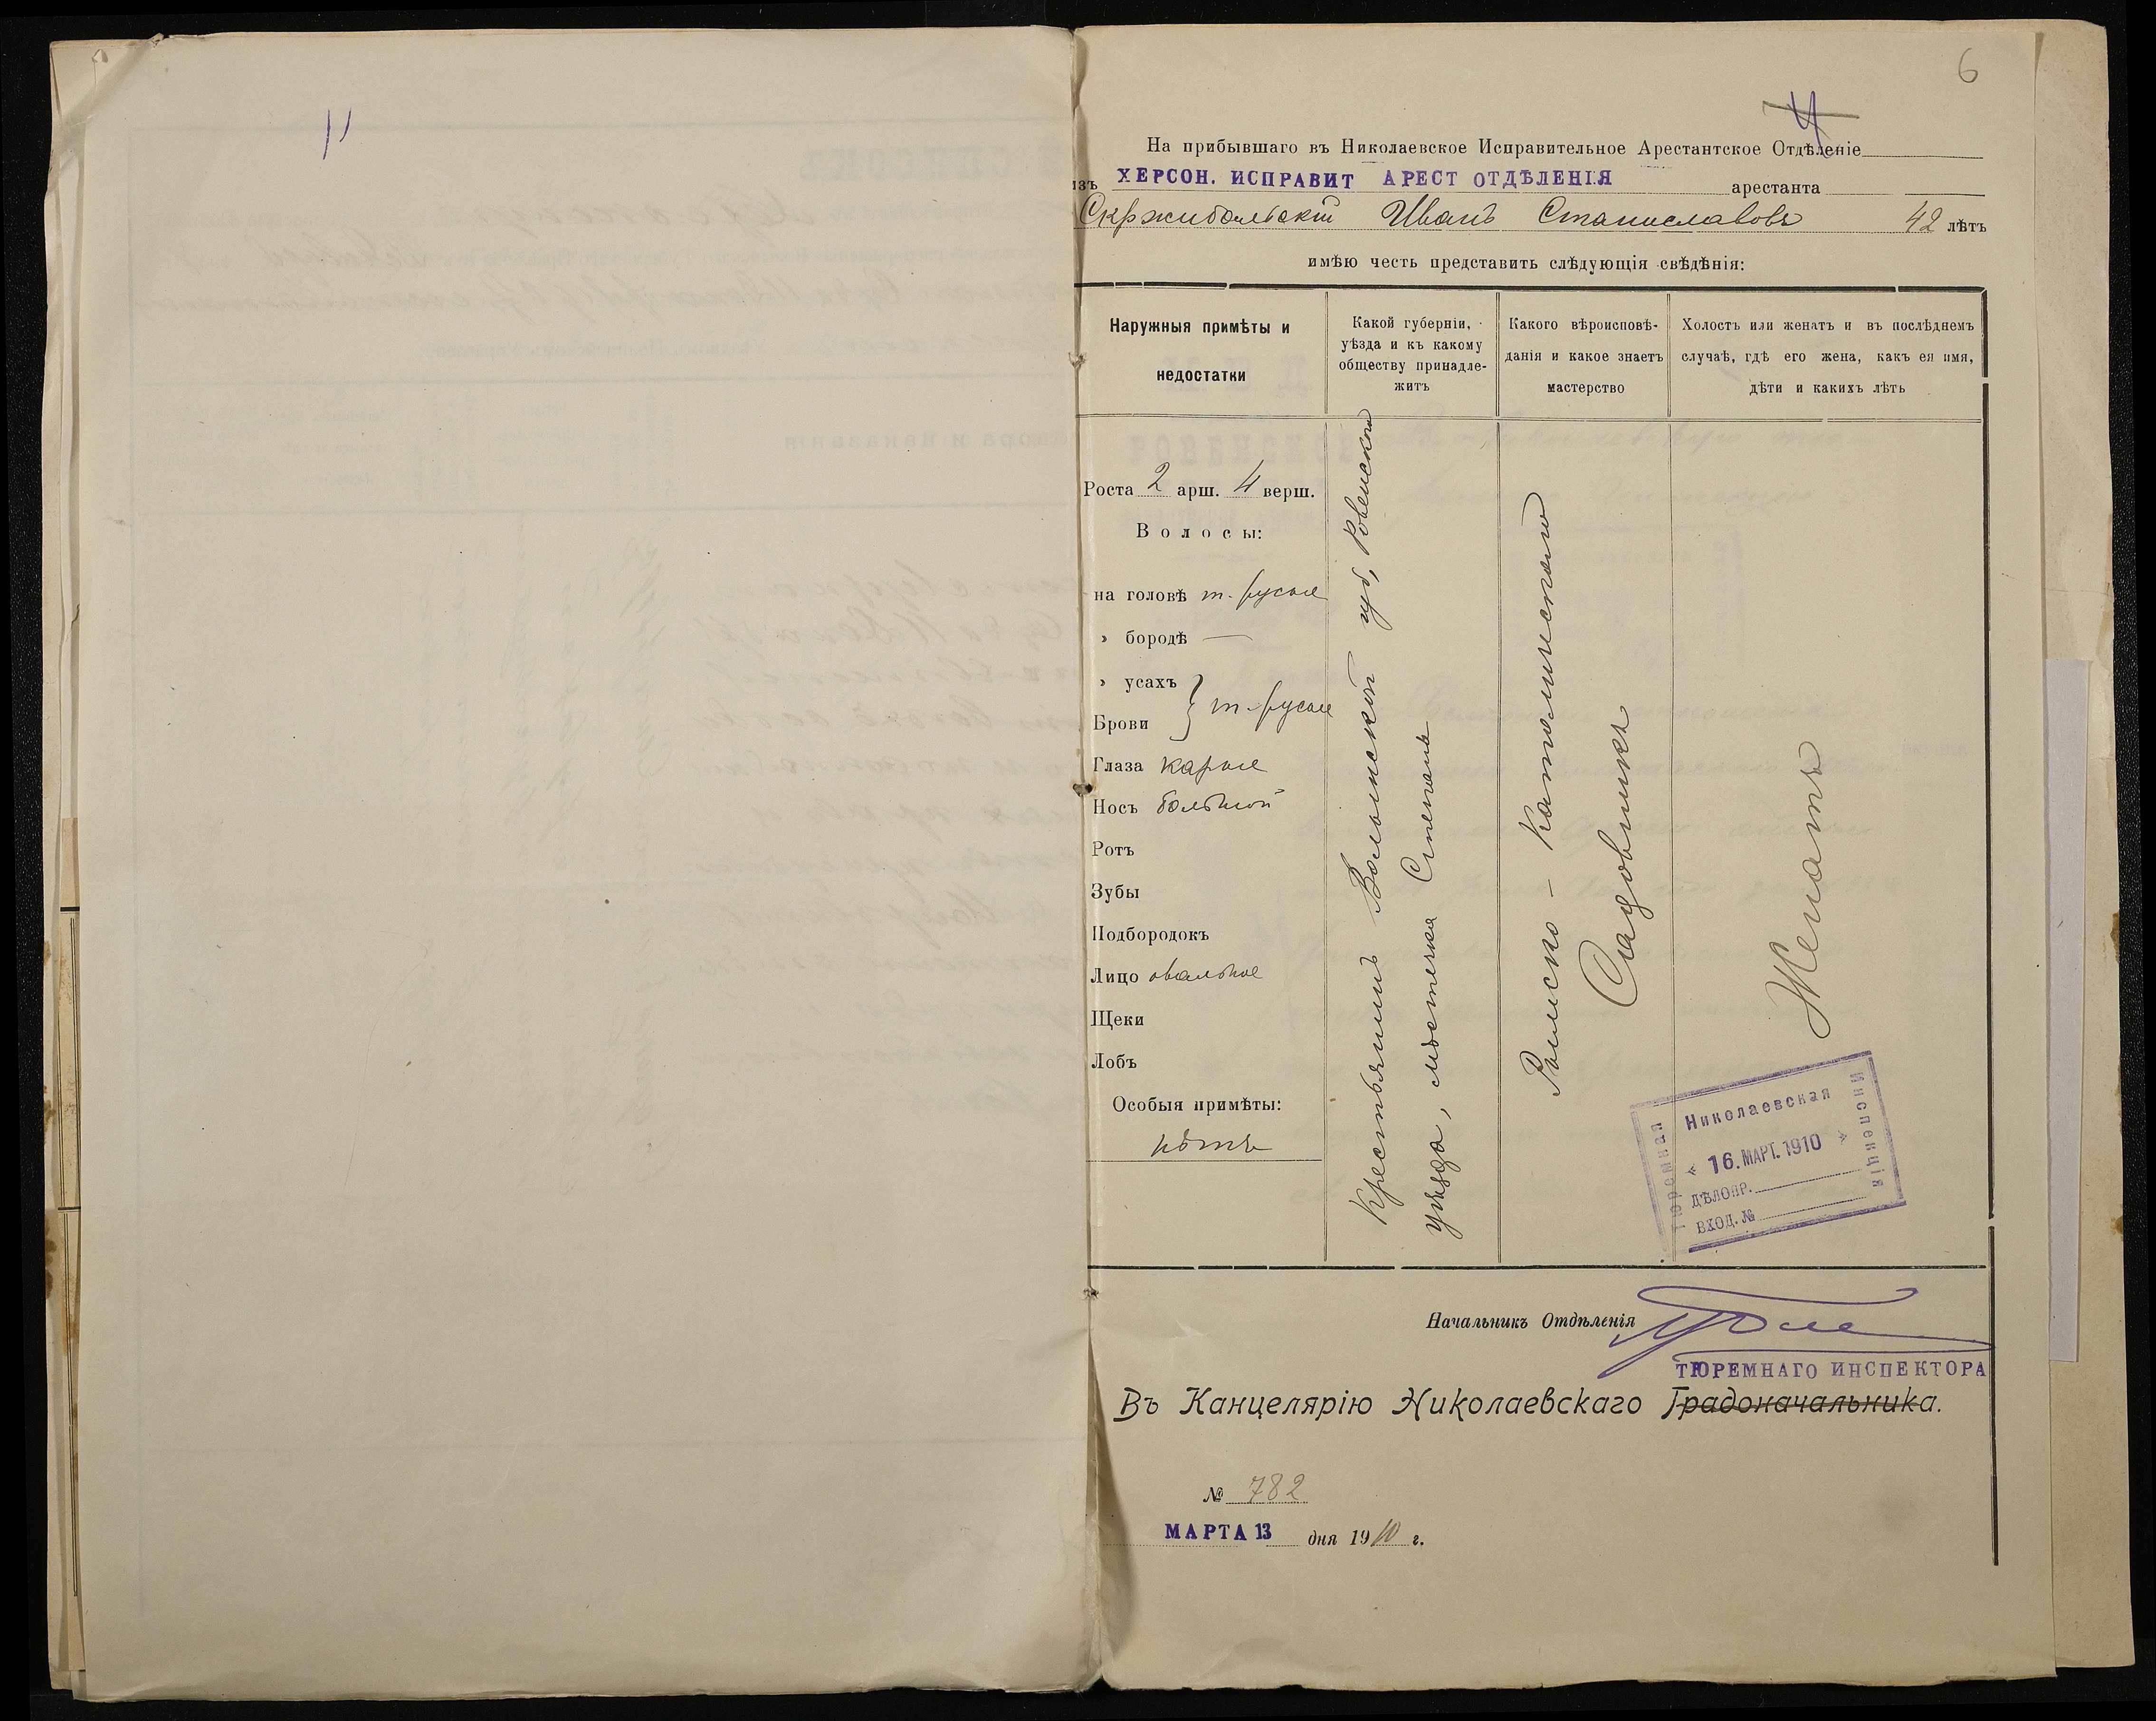 6
4
На прибывшаго въ Николаевское Исправительное Арестантское Отдѣленіе
изъ ХЕРСОН. ИСПРАВИТ АРЕСТ ОТДѢЛЕНІЯ арестанта
Скржибальскій Иванъ Станиславовъ 42 лѣтъ
имѣю честь представить слѣдующія свѣдѣнія:
Наружныя примѣты и
недостатки
Какой губерніи,
уѣзда и къ какому
обществу принадле-
житъ
Какого вѣроисповѣ-
данія и какое знаетъ
мастерство
Холостъ или женатъ и въ послѣднемъ
случаѣ, гдѣ его жена, какъ ея имя,
дѣти и какихъ лѣтъ
Роста 2 арш. 4 верш.
Волосы:
на головѣ т. русые
» бородѣ —
» усахъ
Брови } т. русые
Глаза карые
Носъ большой
Ротъ
Зубы
Подбородокъ
Лицо овальное
Щеки
Лобъ
Особыя примѣты:
нѣтъ
Крестьянинъ Волынской губ, Ровенскаго
уѣзда, мѣстечка Степань
Римско - Католическаго
Садовникъ
Женатъ
Николаевская
Тюремная
Инспекція
16. МАРТ. 1910
ДѢЛОПР.
ВХОД. №
Начальникъ Отдѣленія
ТЮРЕМНАГО ИНСПЕКТОРА
Въ Канцелярію Николаевскаго Градоначальника.
№ 782
МАРТА 13 дня 1910 г.